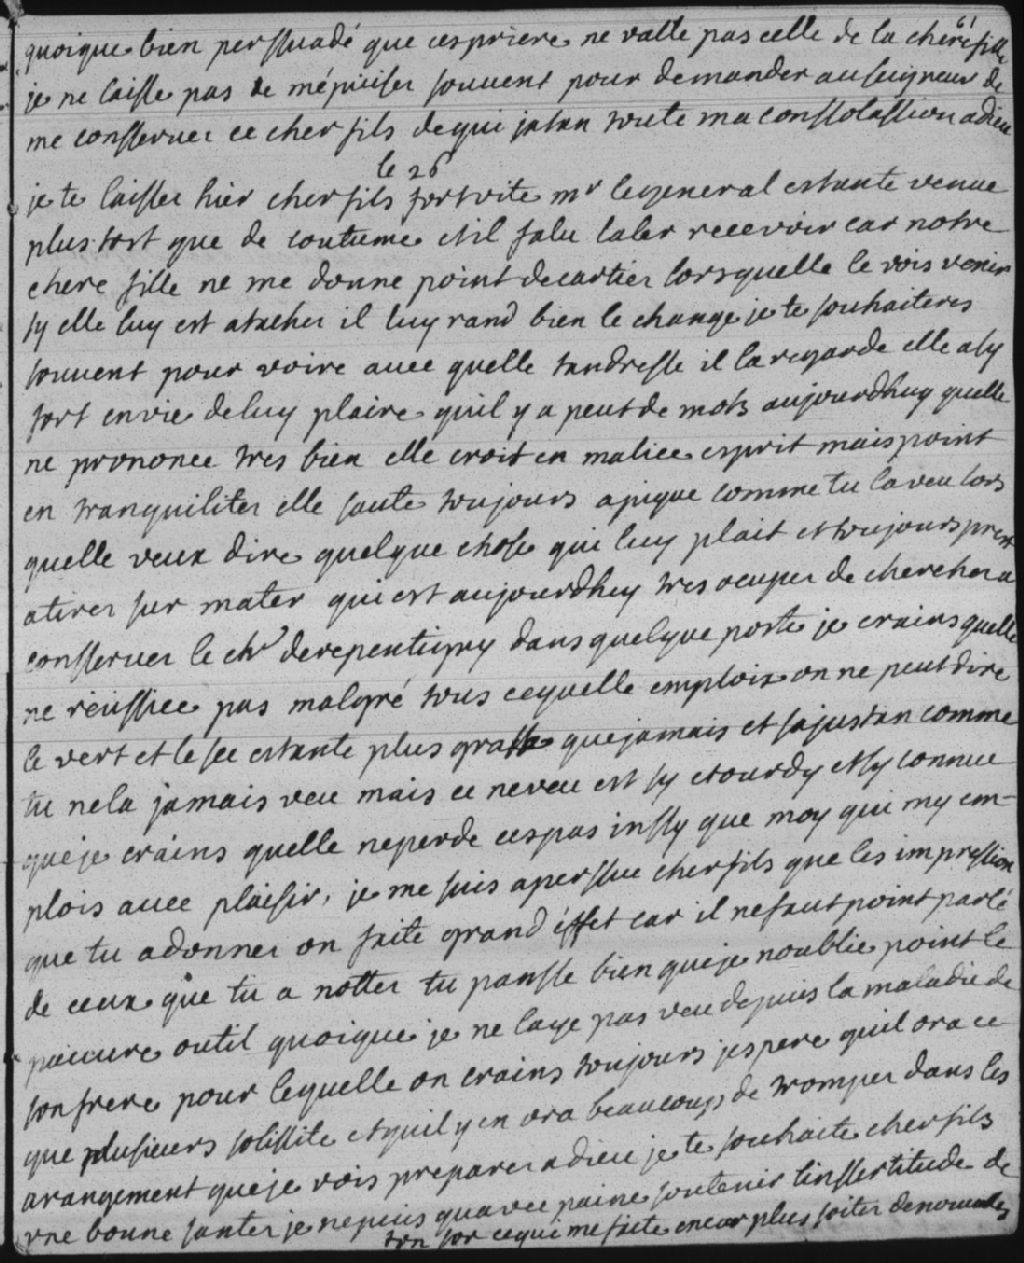 61
quoique bien perssuadé que ces priere ne valle pas celle de la chere fille
je ne laisse pas de mépuiser souvent pour demander au seigneur de
me consserver ce cher fils de qui jatan toute ma conssolassion adieu
le 26
je te laisser hier cher fils fort vite mr le general estante venue
plus tost que de coutume et il falu laler recevoir car notre
chere fille ne me donne point de cartier lorsquelle le vois venir
sy elle luy est atacher il luy rand bien le change je te souhaiteres
souvent pour voire avec quelle tandresse il la regarde elle a sy
fort envie de luy plaire quil y a peut de mots aujourdhuy quelle
ne prononce tres bien elle croit en malice esprit mais point
en tranquiliter elle saute toujours apique comme tu la veu lors
quelle veux dire quelque chose qui luy plait et toujours prest
atirer sur mater qui est aujourdhuy tres ocuper de chercher a
consserver le chr derepentigny dans quelque poste je crains quelle
ne réussice pas malgré tous cequelle emploix on ne peut dire
le vert et le sec estante plus grasse que jamais et sajustan comme
tu nela jamais veu mais ce neveu est sy etourdy et sy connue
que je crains quelle ne perde ces pas inssy que moy qui my em-
plois avec plaisir, je me suis aperssue cher fils que les impression
que tu adonner on faite grand éffet car il ne faut point parlé
de ceux que tu a notter tu pansse bien que je noublie point le
pauvre outil quoique je ne laye pas veu depuis la maladie de
son frere pour lequelle on crains toujours jespere quil ora ce
que plusieurs solissite et quil y en ora beaucoup de tromper dans les
arangement que je vois preparer adieu je te souhaite cher fils
une bonne santer je ne puis quavec paine soutenir linssertitude de
ton sor cequi me faite encor plus soiter de nouvelles